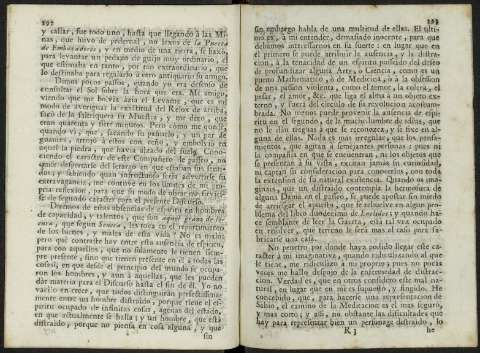 292
y callar, fue todo uno, hasta que llegando à las Mi-
nas, que huvo de pedernal, no lexos de la Puerta
de Embaxadores, y en medio de una tierra, se baxò,
para levantar un pedazo de guijo muy ordinario, el
que estimaba en tanto, por ser tan extraordinario, que
lo destinaba para regalarlo à otro antiquario su amigo.
Dimos pocos passos, quando yo era defensor de
consultar el Sol sobre la hora que era. Mi amigo,
viendo que me bolvia àzia el Levante, que es mi
modo de averiguar la exactitud del Relox de arriba,
sacò de la faltriquera su Muestra, y me dixo, que
eran quatro y siete minutos. Pero como me
quando vì, que, sacando su pañuelo, y un par de
guantes, arrojò à ellos con ceño, y embolsò en
aquel la piedra, que havia alzado del suelo. Cono-
ciendo el caracter de este Compañero de passeo, no
quise distraerle del letargo en que estaban sus senti-
dos, y sabiendo quan infructuoso seria advertirle su
extravagancia, me contuve en los limites de mi pro-
pria reflexion, para que su modo de obrar me sirvies-
se de segundo caracter para el presente Discurso.
Dixemos de estas absencias de espiritu en hombres
de capacidad, y talentos, que son aquel grano de lo-
cura, que segun Seneca, les toca en el repartimiento
de los bienes, y males de esta vida? No es menos
pero què contraste hay entre esta ausencia de espiritu,
para con aquellos, que no solamente le tienen siem-
pre presente, sino que tienen presente en èl à todas las
cosas; en que desde el principio del mundo se ocupa-
ron los hombres, y aun à aquellas, que les pueden
dàr materia para el Discurso hasta el fin de èl. Yo no
vacilo en creer, que todos distinguiràn perfectissima-
mente entre un hombre distraìdo, porque tiene el es-
piritu ocupado de infinitas cosas, agenas del estado,
en que actualmente se halla; y un hombre, que està
distraìdo, porque no piensa en cosa alguna, y que
sin
293
sin embargo habla de una multitud de ellas. El ulti-
mo es, à mi entender, demasiado inocente, para que
debamos interessarnos en su suerte: en lugar que en
el primero se puede atribuir la ausencia, y la distrac-
cion, à la tenacidad de un espiritu posseìdo del deseo
de profundizar alguna Arte, ò Ciencia, como es un
punto Mathematico, ò de Medicina, ò à la obsession
de una passion violenta, como el temor, la colera, el
pesar, el amor, &c. que liga el alma à un objeto ex-
terno, y fuera del circulo de su revolucion acostum-
brada. No menos puede provenir la ausencia de espi-
ritu en el segundo, de la muchedumbre de ideas, que
no le dàn treguas à que se reconozca, y se fixe en al-
guna de ellas. Nada es mas irregular, que los pensa-
mientos, que agitan à semejantes personas; pues ni
la compañia en que se encuentran, ni los objetos que
se presentan à su vista, excitan jamàs su curiosidad,
ni captan su consideracion para conocerlos, con toda
la extension de su natural existencia. Quando os ima-
ginais, que un distraìdo contempla la hermosura de
alguna Dama en el passeo, se puede apostar sin miedo
de arriesgar el apuesto, que se resuelve en algun pro-
blema del libro duodecimo de Euclides; y quando ha-
ce semblante de leer la Gazeta, està tal vez ocupado
en resolver, que terreno le serà mas al caso para fa-
bricarse una casa.
No penetro por donde haya podido llegar este ca-
racter à mi imaginativa; quando reflexionando al que
le tiene, me redescubro à mi proprio; pues no pocas
veces me hallo despojo de la enfermedad de distrac-
cion. Verdad es, que en otros considero este mal na-
tural, en lugar que en mi es supuesto, y fingido. He
concebido, que, para hacerse una representacion de
Sabio, el camino de la Meditacion es el mas seguro,
y mas corto; y assi, no obstante las dificultades que
hay para representar bien un personage distraìdo, lo
K 3 he